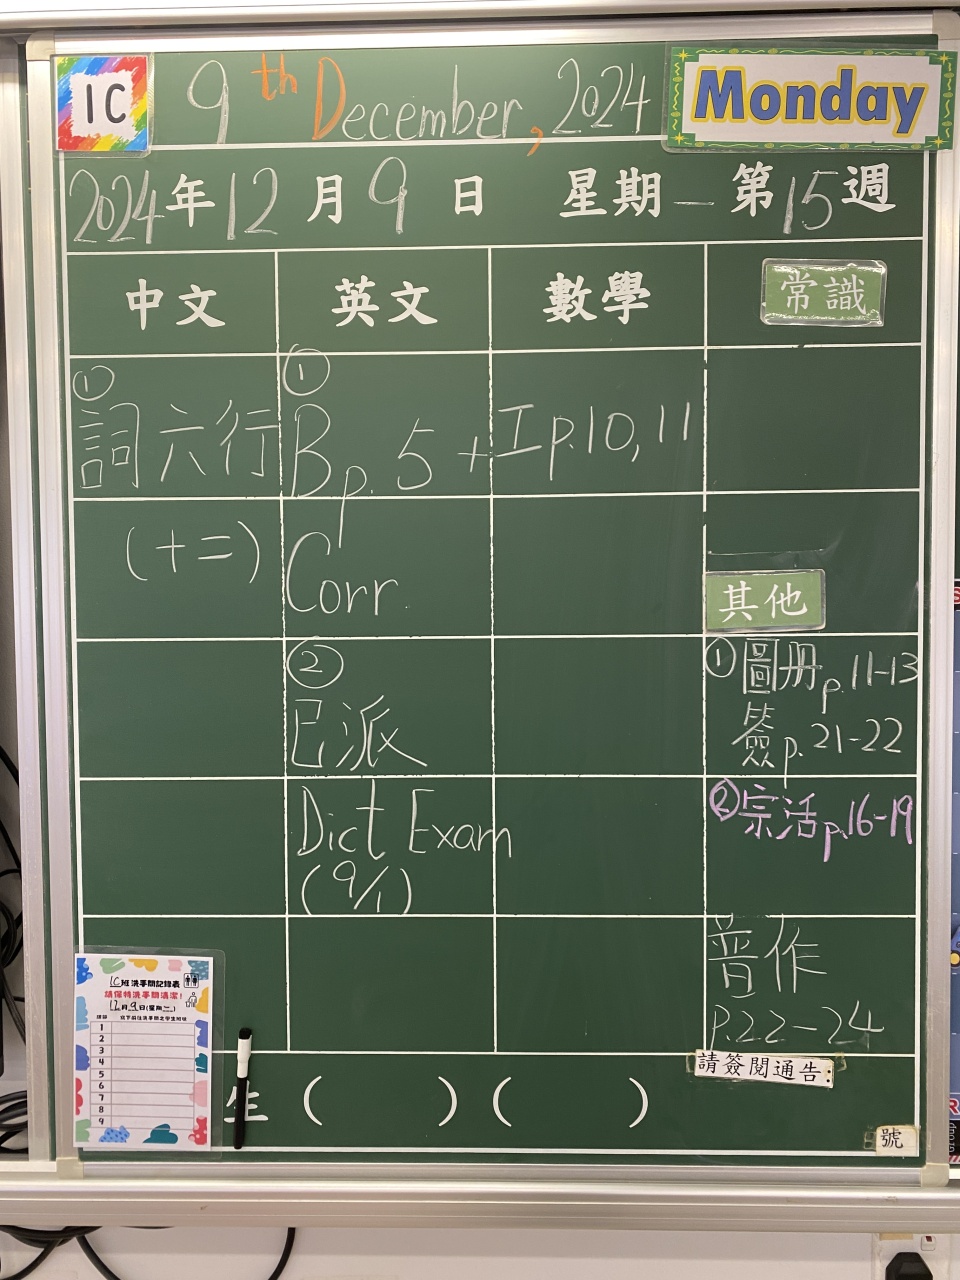 1C
9th December, 2024
Monday
2024年12月9日 星期一 第15週
中文 英文 數學 常識
①
詞六行
(十二)
①
B p. 5 +
Corr.
②
已派
Dict Exam
(9/1)
I p.10, 11
其他
①圖冊p.11-13
簽p.21-22
②宗活p.16-19
普作
p.22-24
請簽閱通告:
號
生 ( ) ( )
1C班洗手間記錄表
請保持洗手間清潔!
12月9日(星期二)
1
2
3
4
5
6
7
8
9